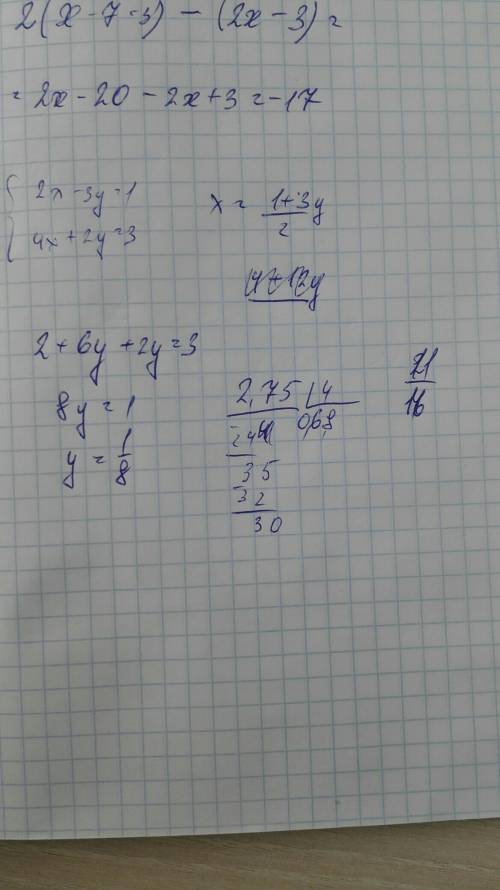 2(x-7-3) - (2x-3)=
= 2x-20-2x+3=-17
2x-3y=1
4x+2y=3
x = 1+3y/2
2+6y+2y=3
8y=1
y = 1/8
2,75 4
0,68
24
35
32
30
21/16